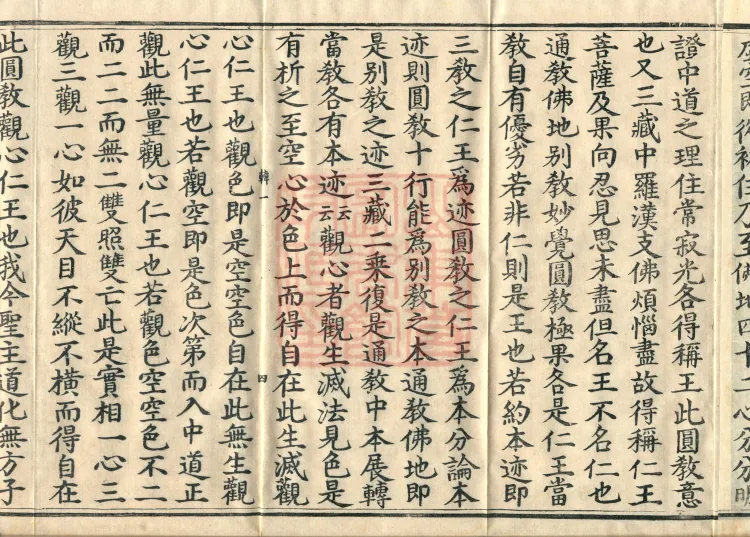 至佛地四十二心分分明
證中道之理住常寂光各得稱王此圓教意
也又三藏中羅漢支佛煩惱盡故得稱仁王
菩薩及果向忍見思未盡但名王不名仁也
通教佛地別教妙覺圓教極果各是仁王當
教自有優劣若非仁則是王也若約本迹即
三教之仁王為迹圓教之仁王為本分論本
迹則圓教十行能為別教之本通教佛地即
是別教之迹三藏二乘復是通教中本展轉
當教各有本迹云云觀心者觀生滅法見色是
有析之至空心於色上而得自在此生滅觀
韓一
四
心仁王也觀色即是空空色自在此無生觀
心仁王也若觀空即是色次第而入中道正
觀此無量觀心仁王也若觀色空空色不二
而二二而無二雙照雙亡此是實相一心三
觀三觀一心如彼天目不縱不橫而得自在
此圓教觀心仁王也我今聖主道化無方子